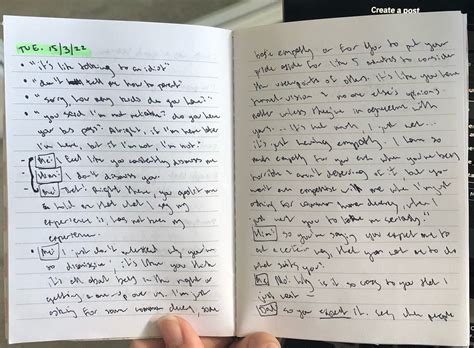 Create a post
TUE. 15/3/22
• "it's like talking to an idiot"
• "don't tell me how to parent"
• "sorry how many kids do you have?"
• "you said I'm not welcome? do you have
your bus pass? Alright, if I'm here later
I'm here, but if I'm not, I'm not."
- Me: I feel like you constantly dismiss me
Mum: I don't dismiss you.
- Me: Right there, you
on that what I say my
experience is, has not been my
experience.
• Me: I just don't understand why you're
so dismissive, it's like you think
it's all about being in the right or
getting a one-up over us. I'm just
asking for some common decency, some
basic empathy or for you to put your
pride aside for like 5 minutes to consider
the viewpoints of others. It's like you have
tunnel vision & no one else's opinions
matter unless they're in agreement with
yours... It's not much, I just want...
it's just having empathy. I have so
much empathy for you even when you've been
horrible & am't deserving of it, but you
won't any empathise with me when I'm just
asking for common human decency, when I
just want you to me seriously."
Mum: so you're saying you expect me to
act a certain way, that you want me to do
what suits you".
Me: No. Why is it so easy to you that I
just want –
Dad: so you expect it. See, the people